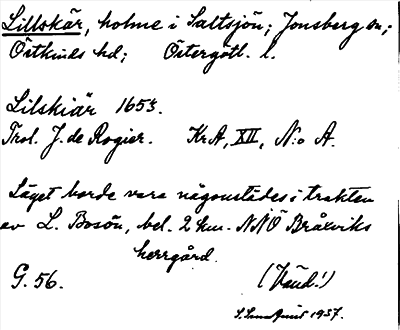 Lillskär, holme i Saltsjön; Jonsberg sn;
Östkinds hd; Östergötl. l.
Lilskiär 1653.
Trol. J. de Rogier. KrA, XII, N:o A.
Läget borde vara någonstädes i trakten
av L. Bosön, bel. 2 km. NNÖ Bråxviks
herrgård.
G. 56. (Vänd!)
1937.